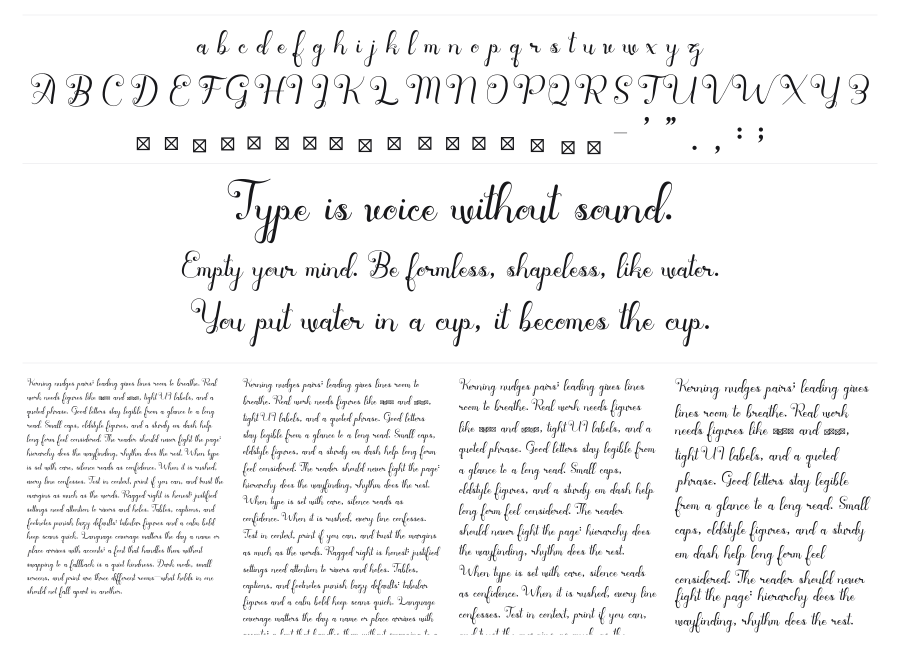 a b c d e f g h i j k l m n o p q r s t u v w x y z
A B C D E F G H I J K L M N O P Q R S T U V W X Y Z
_ ’ ” . , : ;
Type is voice without sound.
Empty your mind. Be formless, shapeless, like water.
You put water in a cup, it becomes the cup.
Kerning nudges pairs; leading gives lines room to breathe. Real
work needs figures like and , tight UI labels, and a
quoted phrase. Good letters stay legible from a glance to a long
read. Small caps, oldstyle figures, and a sturdy em dash help
long form feel considered. The reader should never fight the page:
hierarchy does the wayfinding, rhythm does the rest. When type
is set with care, silence reads as confidence. When it is rushed,
every line confesses. Test in context, print if you can, and trust the
margins as much as the words. Ragged right is honest; justified
settings need attention to rivers and holes. Tables, captions, and
footnotes punish lazy defaults: tabular figures and a calm bold
keep scans quick. Language coverage matters the day a name or
place arrives with accents: a font that handles them without
snapping to a fallback is a quiet kindness. Dark mode, small
screens, and print are three different rooms: what holds in one
should not fall apart in another.
Kerning nudges pairs; leading gives lines room to
breathe. Real work needs figures like and ,
tight UI labels, and a quoted phrase. Good letters
stay legible from a glance to a long read. Small caps,
oldstyle figures, and a sturdy em dash help long form
feel considered. The reader should never fight the page:
hierarchy does the wayfinding, rhythm does the rest.
When type is set with care, silence reads as
confidence. When it is rushed, every line confesses.
Test in context, print if you can, and trust the margins
as much as the words. Ragged right is honest; justified
settings need attention to rivers and holes. Tables,
captions, and footnotes punish lazy defaults: tabular
figures and a calm bold keep scans quick. Language
coverage matters the day a name or place arrives with
Kerning nudges pairs; leading gives lines
room to breathe. Real work needs figures
like and , tight UI labels, and a
quoted phrase. Good letters stay legible from
a glance to a long read. Small caps,
oldstyle figures, and a sturdy em dash help
long form feel considered. The reader
should never fight the page: hierarchy does
the wayfinding, rhythm does the rest.
When type is set with care, silence reads
as confidence. When it is rushed, every line
confesses. Test in context, print if you can,
Kerning nudges pairs; leading gives
lines room to breathe. Real work
needs figures like and ,
tight UI labels, and a quoted
phrase. Good letters stay legible
from a glance to a long read. Small
caps, oldstyle figures, and a sturdy
em dash help long form feel
considered. The reader should never
fight the page: hierarchy does the
wayfinding, rhythm does the rest.